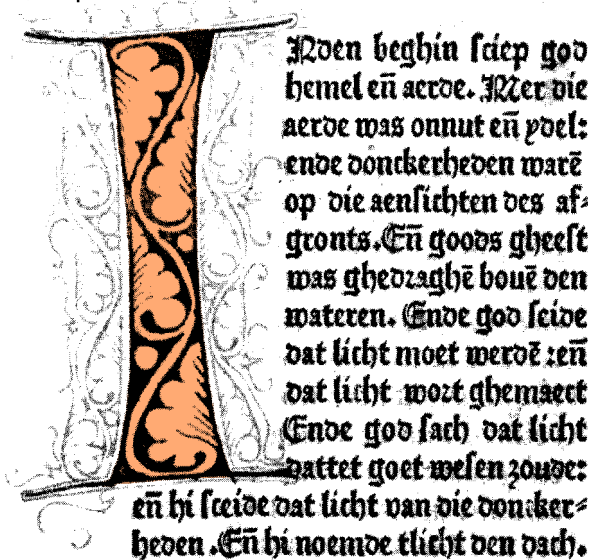 INden beghin sciep god
hemel eñ aerde. Mer die
aerde was onnut eñ ydel:
ende donckerheden warē
op die aensichten des af-
gronts. Eñ goods gheest
was ghedraghē bouē den
wateren. Ende god seide
dat licht moet werdē : eñ
dat licht wort ghemaect
Ende god sach dat licht
dattet goet wesen zoude:
eñ hi sceide dat licht van die doncker-
heden. Eñ hi noemde tlicht den dach.